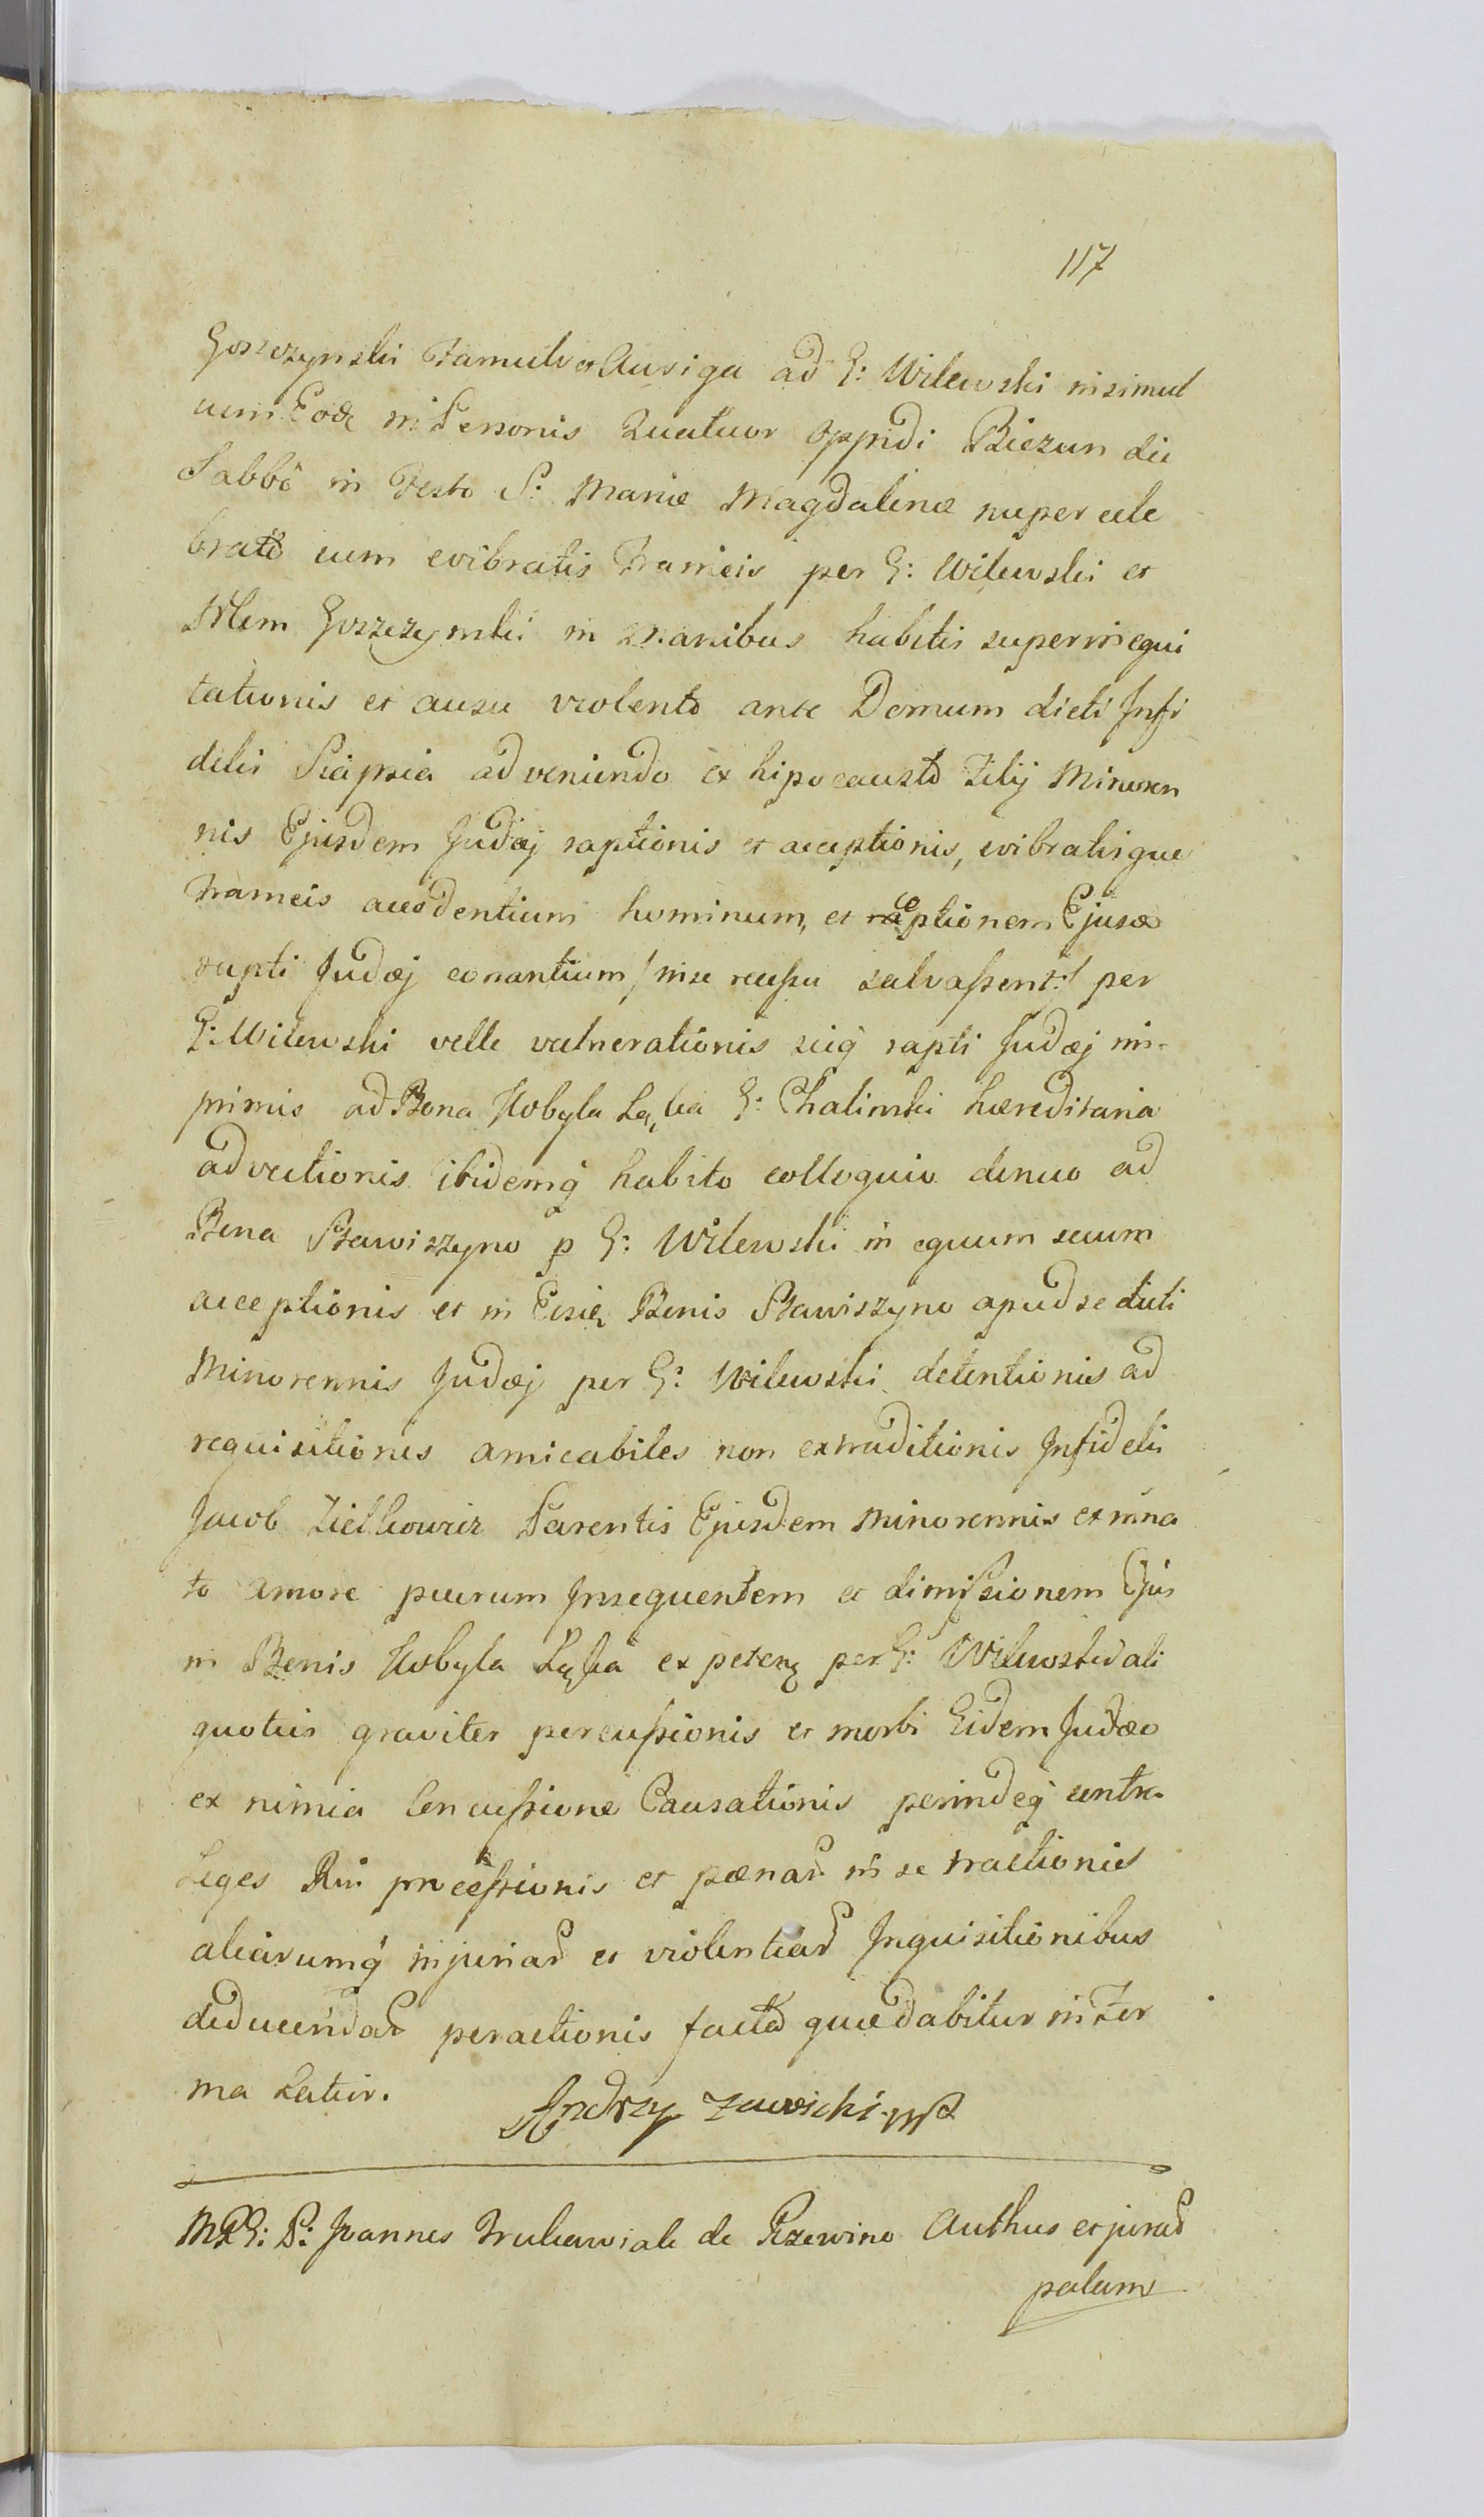 117
Goszczynski Famulo et Auriga ad G: Wilewski insimul
cum Eodē in Personis Quatuor Oppidi Biezun die
Sabbō in Festo S: Mariæ Magdalenæ nuper cele
brato cum evibratis Frameis per G: Wilewski et
Goszczynski in manibus habitis superinequi
tationis et ausu violento ante Domum dicti Infi
delis adveniendo ex hipocausto Filij Minoren
nis Ejusdem Judæj raptionis et acceptionis, evibratisque
Frameis accedentium hominum, et receptionem Ejusd
rapti Judæj conantium / ni se recessu salvassent / per
G: Wilewski velle vulnerationis sicq rapti Judæj im-
primis ad Bona Kobyla Łąka G: Chalinski hæreditaria
advectionis ibidemq habito colloquio denuo ad
Bona Stawiszyno p G: Wilewski in equum secum
acceptionis et in Eisdē Bonis Stawiszyno apud se dicti
Minorennis Judæj per G: Wilewski detentionis ad
requisitiones amicabiles non extraditionis Infidelis
Jacob Parentis Ejusdem Minorennis ex inna
to amore puerum Insequentem et dimissionem Ejus
in Bonis Kobyla Łąka ex peteñ per G: Wilewski ali
quoties graviter percussionis et morbi Eidem Judæo
ex nimia Concussione Causationis perindeq contra
Leges Rni processionis et pænar in se tractionis
aliarumq injuriar et violentiar Inquisitionibus
deducendar peractionis facta quæ dabitur in Ter
ma Latius.
Andrzy Zawicki mp
MG: D: Joannes de Rzewino Authus et jurat
palam